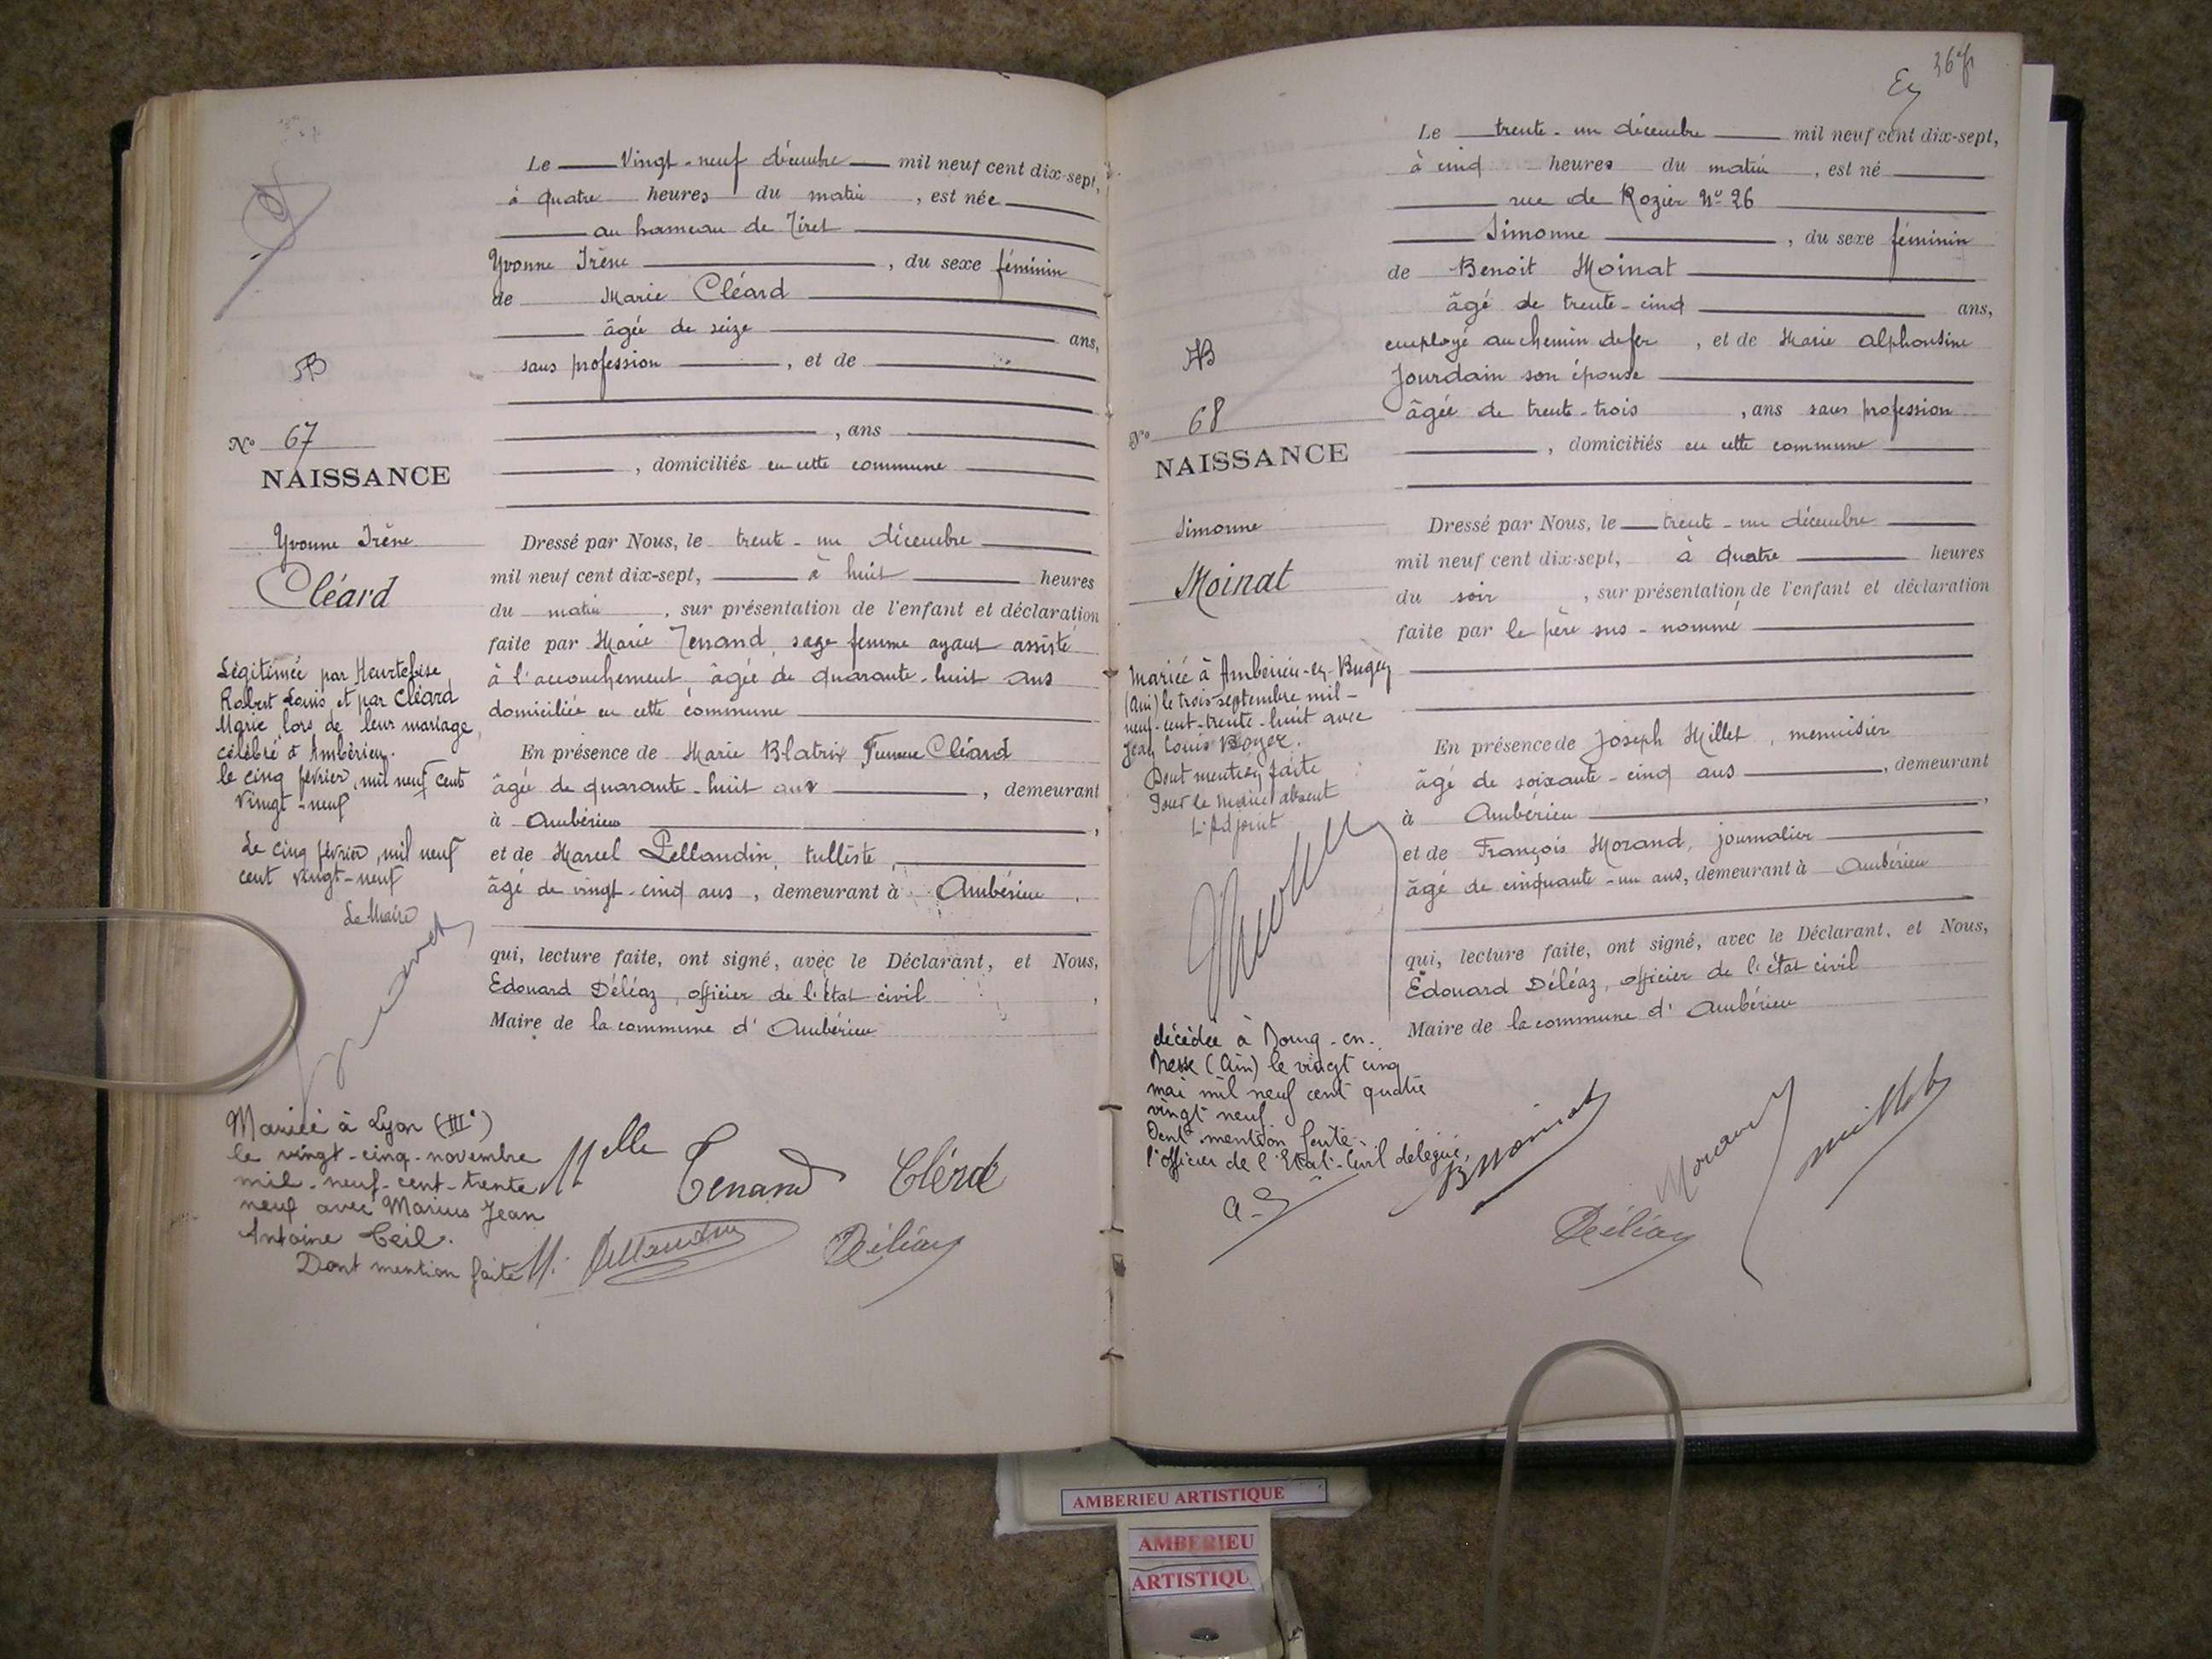 Le vingt-neuf décembre mil neuf cent dix-sept,
à quatre heures du matin, est née
au hameau de Tiret
Yvonne Irène, du sexe féminin
de Marie Cléard
âgée de seize ans,
sans profession, et de
, ans
, domiciliés en cette commune
Dressé par Nous, le trente-un décembre
mil neuf cent dix-sept, à huit heures
du matin, sur présentation de l'enfant et déclaration
faite par Marie Tenand, sage femme ayant assisté
à l'accouchement, âgée de quarante-huit ans
domiciliée en cette commune
En présence de Marie Blatrix Femme Cléard
âgée de quarante-huit ans, demeurant
à Ambérieu,
et de Marcel Pellandin, tulliste,
âgé de vingt-cinq ans, demeurant à Ambérieu,
qui, lecture faite, ont signé, avec le Déclarant, et Nous,
Edouard Déléaz, officier de l'état civil,
Maire de la commune d'Ambérieu
Mlle Tenand Cléard
M. Pellandin Déléaz
N° 67
NAISSANCE
Yvonne Irène
Cléard
Légitimée par Heurtebise
Robert Louis, et par Cléard
Marie, lors de leur mariage,
célébré à Ambérieu.
le cinq février, mil neuf cent
vingt-neuf
Le cinq février, mil neuf
cent vingt-neuf
Le Maire
Mariée à Lyon (III°)
le vingt-cinq-novembre
mil-neuf-cent-trente
neuf avec Marius Jean
Antoine Ceil.
Dont mention faite
36
Le trente-un décembre mil neuf cent dix-sept,
à cinq heures du matin, est né
rue de Rozier N° 26
Simonne, du sexe féminin
de Benoit Moinat
âgé de trente-cinq ans,
employé au chemin de fer, et de Marie Alphonsine
Jourdain son épouse
âgée de trente-trois, ans sans profession
, domiciliés en cette commune
Dressé par Nous, le trente-un décembre
mil neuf cent dix-sept, à quatre heures
du soir, sur présentation de l'enfant et déclaration
faite par le père sus-nommé
En présence de Joseph Millet, menuisier
âgé de soixante-cinq ans, demeurant
à Ambérieu,
et de François Morand, journalier
âgé de cinquante-un ans, demeurant à Ambérieu
qui, lecture faite, ont signé, avec le Déclarant, et Nous,
Edouard Déléaz, officier de l'état civil
Maire de la commune d'Ambérieu
B Moinat Morand Millet
Déléaz
N° 68
NAISSANCE
Simonne
Moinat
Mariée à Ambérieu-en-Bugey
(Ain) le trois-septembre mil-
neuf-cent-trente-huit avec
Jean Louis Boyer.
Dont mention faite
Pour le Maire absent
L'Adjoint
décédée à Bourg-en-
Bresse (Ain) le vingt cinq
mai mil neuf cent quatre
vingt neuf
Dont mention faite
l'officier de l'Etat-Civil délégué,
AMBERIEU ARTISTIQUE
AMBERIEU
ARTISTIQU